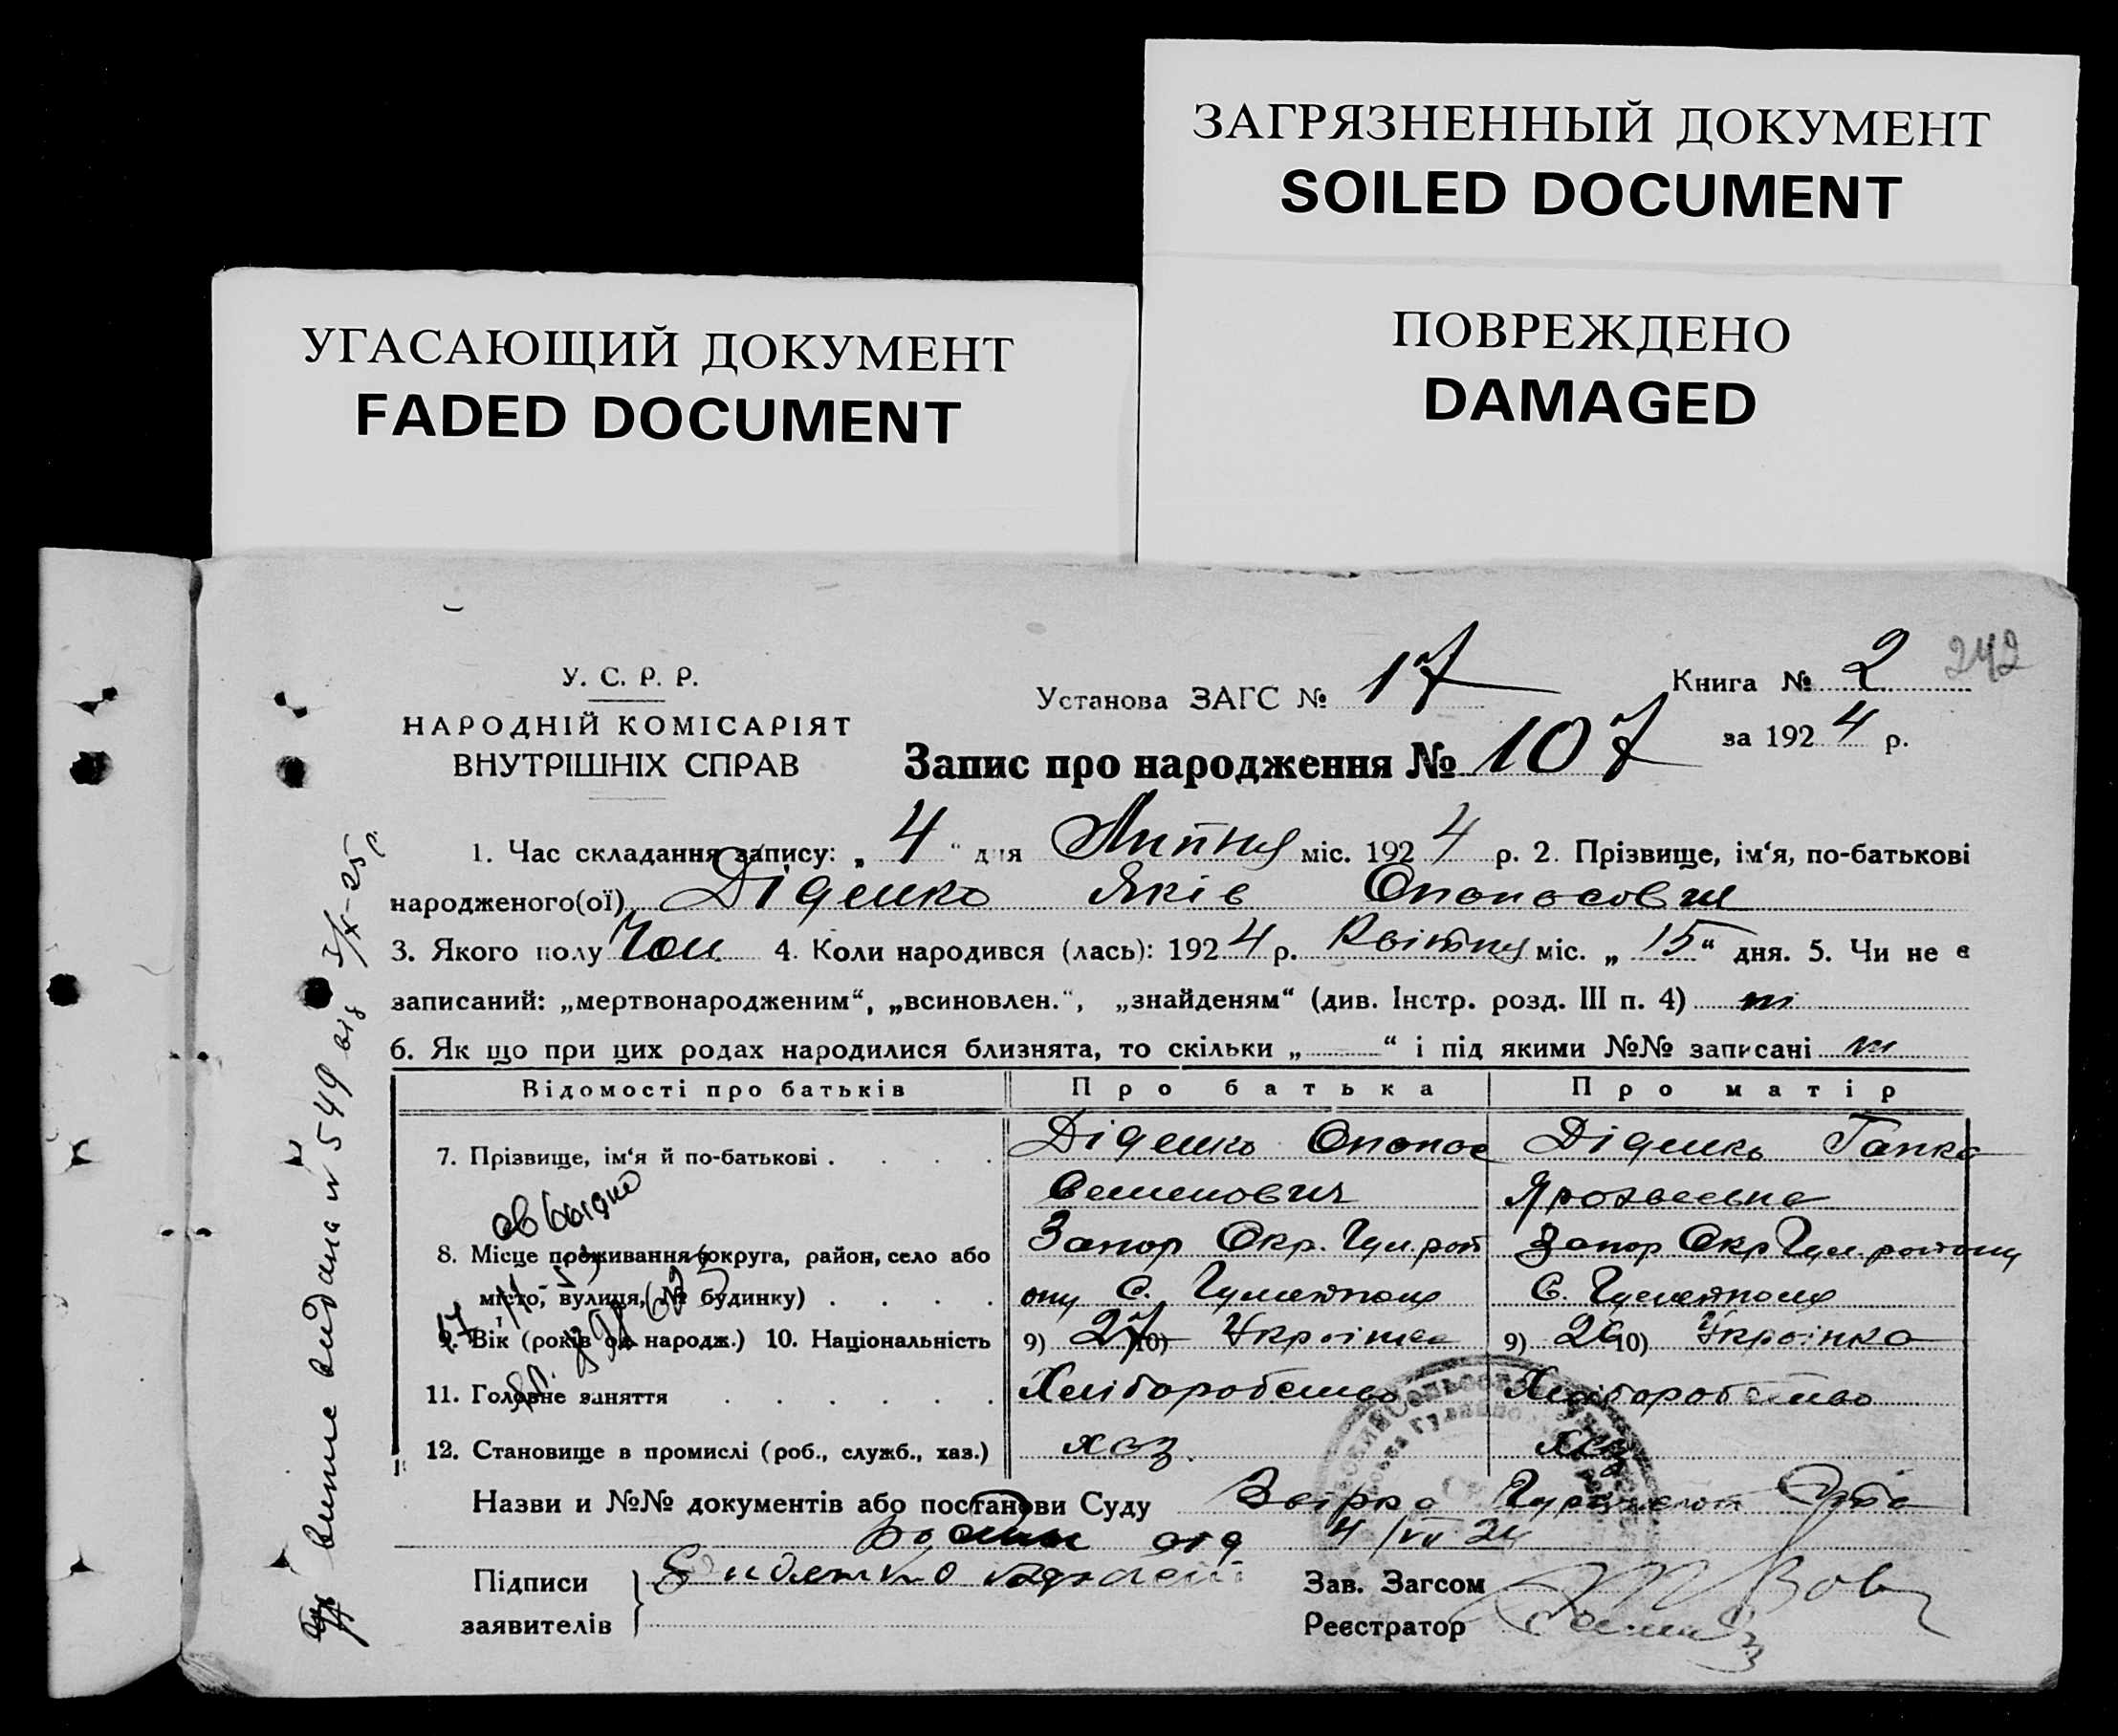 ЗАГРЯЗНЕННЫЙ ДОКУМЕНТ
SOILED DOCUMENT
УГАСАЮЩИЙ ДОКУМЕНТ
FADED DOCUMENT
ПОВРЕЖДЕНО
DAMAGED
242
У. С. Р. Р.
НАРОДНІЙ КОМІСАРІЯТ
ВНУТРІШНІХ СПРАВ
Установа ЗАГС № 17
Книга № 2
за 1924 р.
Запис про народження № 107
1. Час складання запису: „4“ дня Липня міс. 1924 р. 2. Прізвище, ім‘я, по-батькові
народженого(ої) Діденко Яків Опонасович
3. Якого полу Чол. 4. Коли народився (лась): 1924 р. Квітня міс. „15“ дня. 5. Чи не є
записаний: „мертвонародженим“, „всиновлен.“, „знайденям“ (див. Інстр. розд. III п. 4) ні
6. Як що при цих родах народилися близнята, то скільки „ “ і під якими №№ записані ні
Відомості про батьків Про батька Про матір
7. Прізвище, ім‘я й по-батькові . . . . Діденко Опонас Діденко Гапка
Семенович
8. Місце проживання (округа, район, село або Запор Окр. Гул. рай Запор Окр Гул. району
місто, вулиця, № будинку) . . . . ону С. Гуляйполя С. Гуляйполя
9. Вік (років од народж.) 10. Національність 9) 27 10) 9) 26 10) Українка
11. Головне заняття . . . . . . Хліборобство Хліборобство
12. Становище в промислі (роб., служб., хаз.) хаз. хаз
Назви и №№ документів або постанови Суду
від 4/VII 24
Підписи
заявителів
Зав. Загсом
Реєстратор
витис видана № 549 від 3/X-25 р.